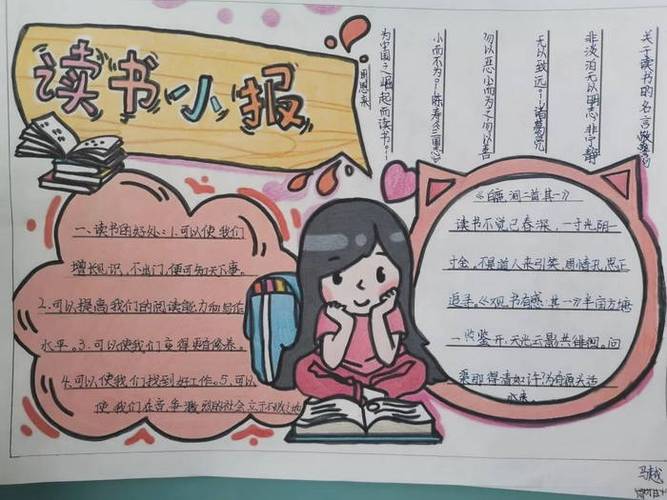 读书小报
关于读书的名言警句
非淡泊无以明志 非宁静
无以致远——诸葛亮
勿以恶小而为之勿以善
小而不为——陈寿《三国志》
为中国之崛起而读书——
周恩来
一、读书的好处:1.可以使我们
增长见识,不出门,便可知天下事。
2.可以提高我们的阅读能力和写作
水平。3.可以使我们变得更有修养。
4.可以使我们找到好工作。5.可以
使我们在竞争激烈的社会立于不败之地
《白鹿洞二首其一》
读书不觉已春深,一寸光阴一
寸金。不是道人来引笑,周情孔思正
追寻。《观书有感·其一》半亩方塘
一鉴开,天光云影共徘徊。问
渠那得清如许?为有源头活
水来。
马越